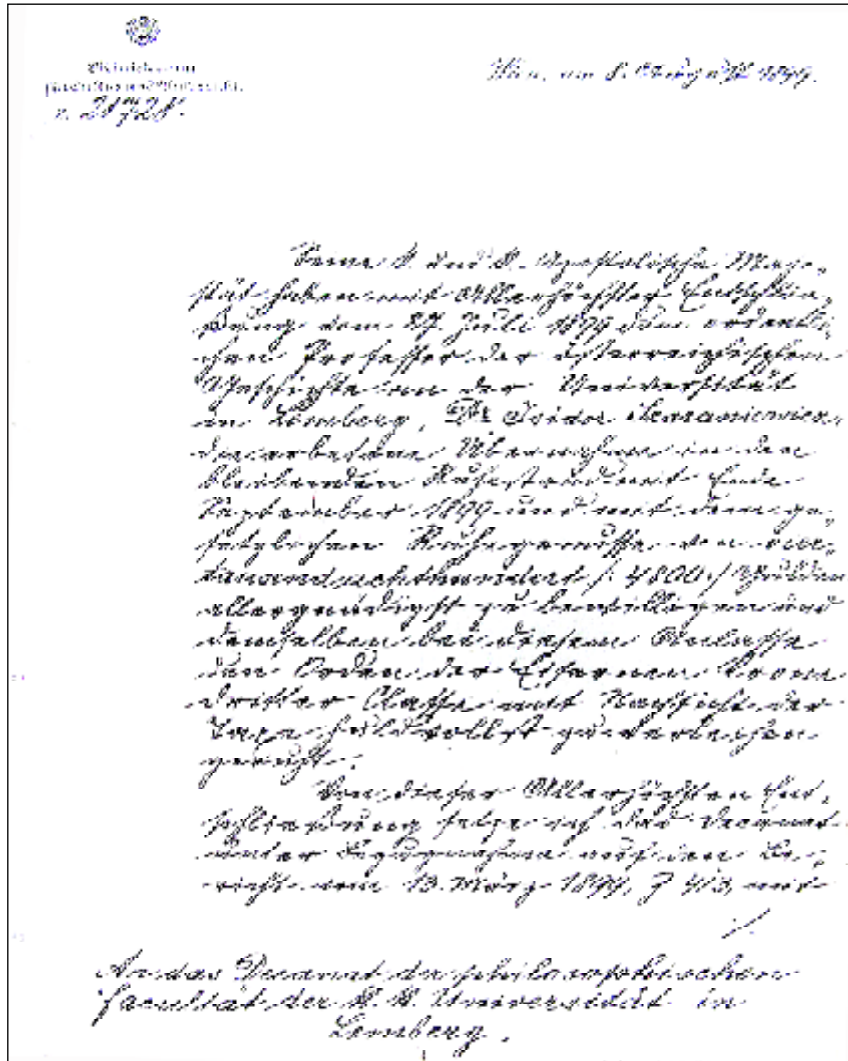 Ministerium
für Cultus und Unterricht.
Z. 21728.
Wien, am 8. August 1899.
Seine k. und k. Apostolische Maje-
stät haben mit Allerhöchster Entschlie-
ßung vom 27. Juli 1899 dem ordentli-
chen Professor der österreichischen
Geschichte an der Universität
in Lemberg, Dr Isidor Szaraniewicz,
die erbetene Übernahme in den
bleibenden Ruhestand mit Ende
September 1899 und mit dem ge-
setzlichen Ruhegenusse von vier-
tausendachthundert /: 4800 :/ Gulden
allergnädigst zu bewilligen und
demselben bei diesem Anlasse
den Orden der Eisernen Krone
dritter Classe mit Nachsicht der
Taxe huldvollst zu verleihen
geruht.
Von dieser Allerhöchsten Ent-
schließung setze ich das Decanat
unter Bezugnahme auf den Be-
richt vom 13. März 1899, Z 413, mit
./.
An das Decanat der philosophischen
Facultät der k. k. Universität in
Lemberg.